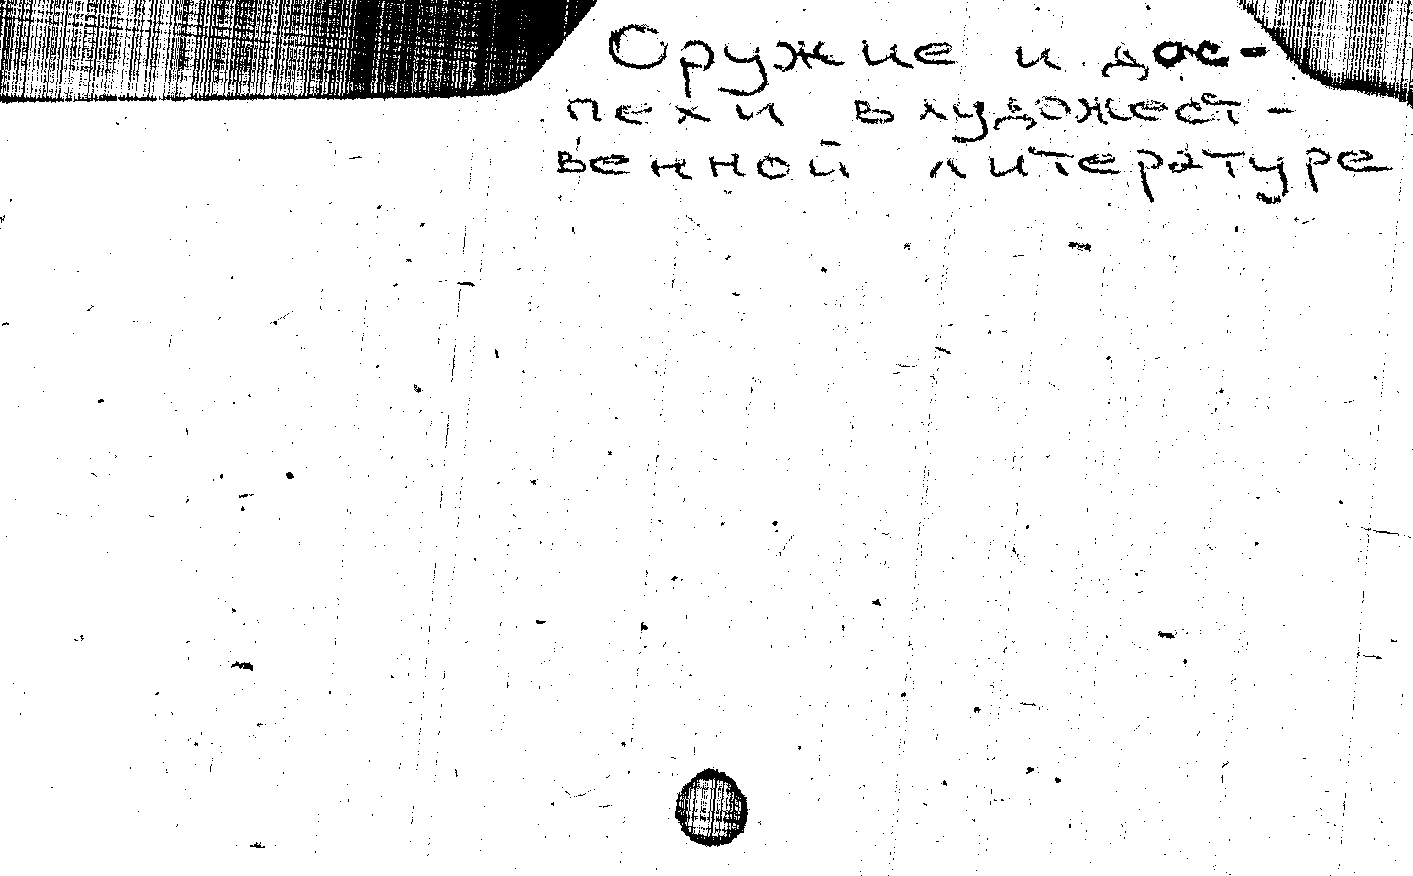 Оружие и дос-
пехи в художест-
венной литературе